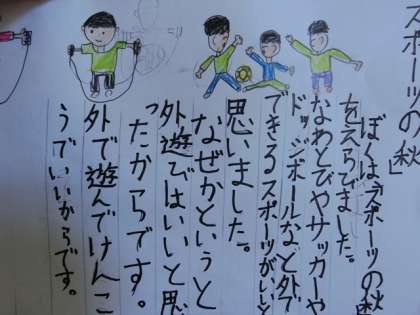 スポーツの秋」
ぼくは、「スポーツの秋
をえらでました。
なわとびやサッカーや
ドッジボールなど外で
できるスポーツがいいと
思いました。
なぜかというと
外遊びはいいと思
ったからです。
外で遊んでけんこ
うでいいからです。